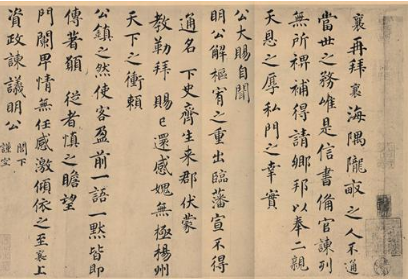 襄再拜襄海隅隴畝之人不通
當世之務唯是信書備官諫列
無所裨補得請鄉邦以奉二親
天恩之厚私門之幸實
公大賜自聞
明公解樞宥之重出臨藩宣不得
通名下史齊生來郡伏蒙
教勒拜賜已還感愧無極楊州
天下之衝賴
公鎮之然使客盈前一語一默皆即
傳者願從者慎之瞻望
門闌卑情無任感激傾依之至襄上
資政諫議明公
閤下
謹空